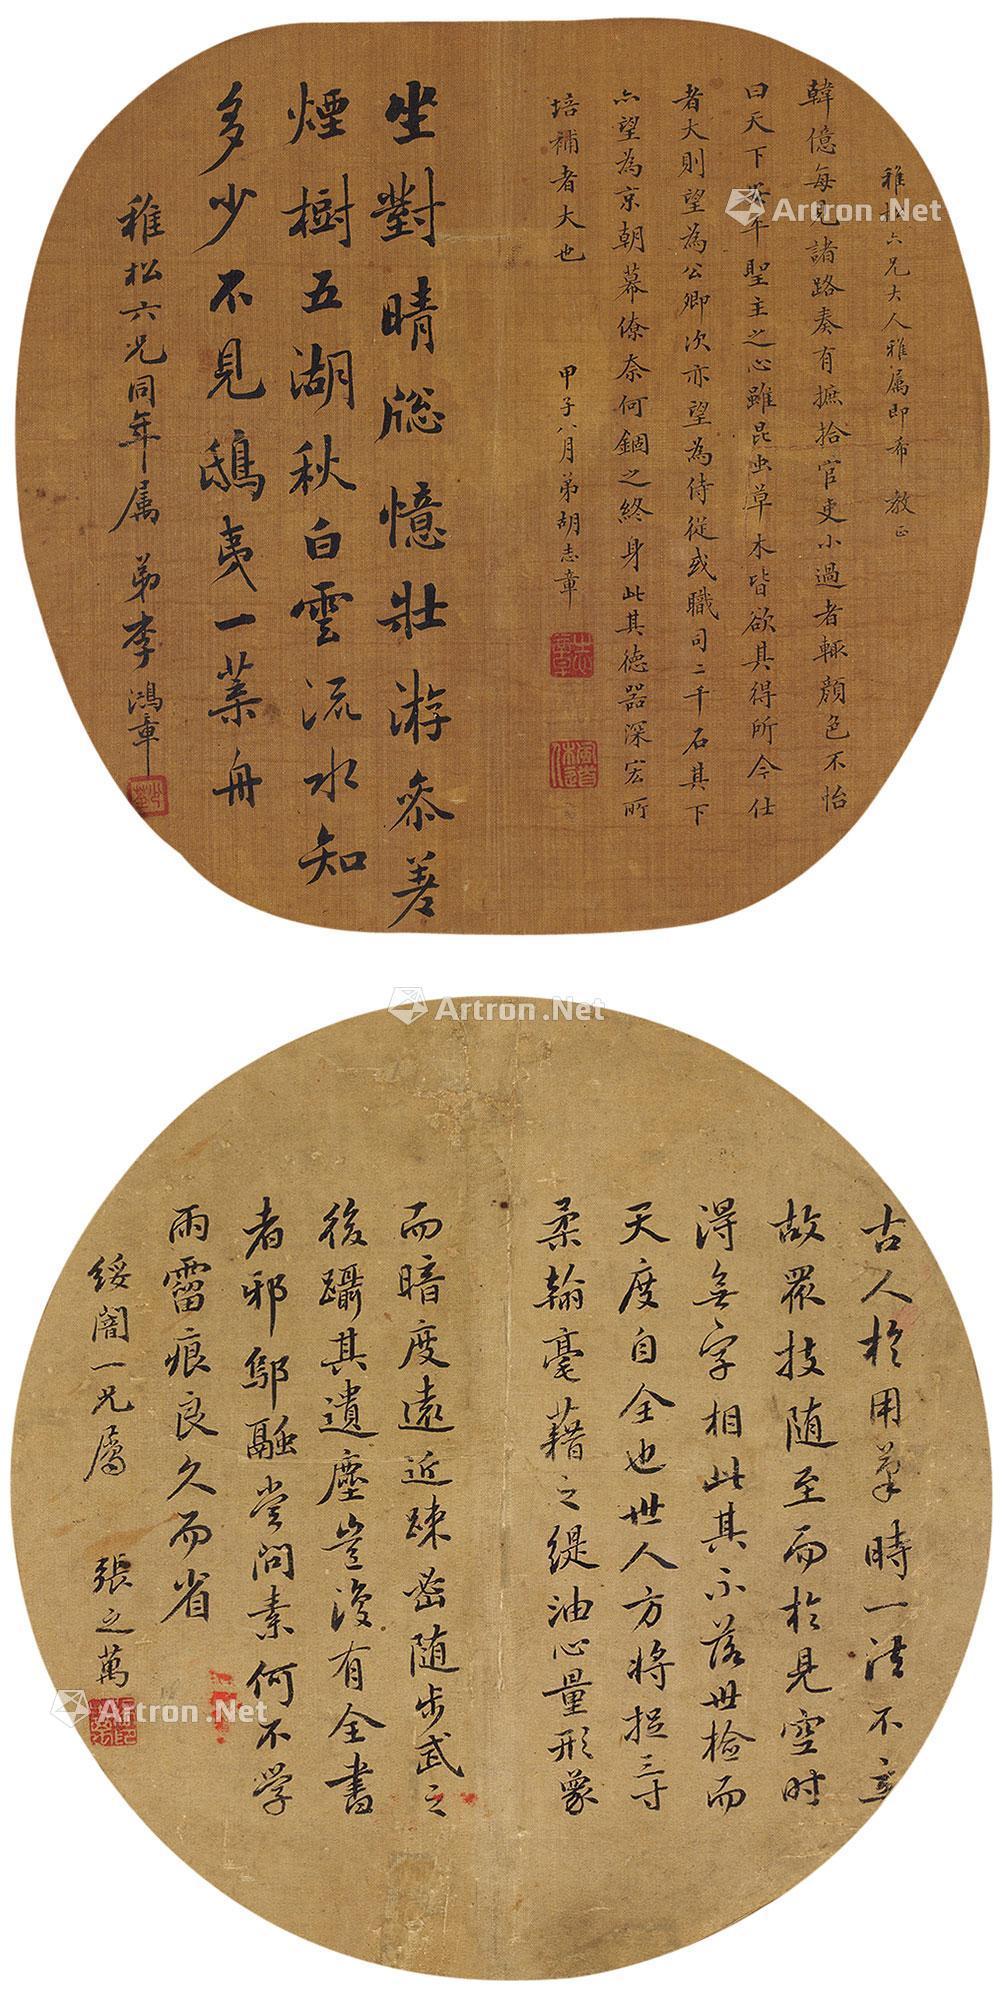 稚松六兄大人雅属即希 教正
韓億每見諸路奏有摭拾官吏小過者輒顔色不怡
曰天下太平聖主之心雖昆虫草木皆欲其得所今仕
者大則望為公卿次亦望為侍從或職司二千石其下
亦望為京朝幕僚奈何錮之終身此其德器深宏所
培補者大也
甲子八月弟胡志章
坐對晴牕憶壯游參差
煙樹五湖秋白雲流水知
多少不見鴟夷一葉舟
稚松六兄同年属 弟李鴻章
Artron.Net
Artron.Net
古人於用筆時一法不立
故衆技随至而於見空时
得無字相此其不落世檢而
天度自全也世人方將捉三寸
柔翰毫藉之緹油心量形象
而暗度遠近疎密随步武之
後躡其遺塵豈復有全書
者邪鄔融嘗問素何不学
雨霤痕良久而省
綏闇一兄属 張之萬
Artron.Net